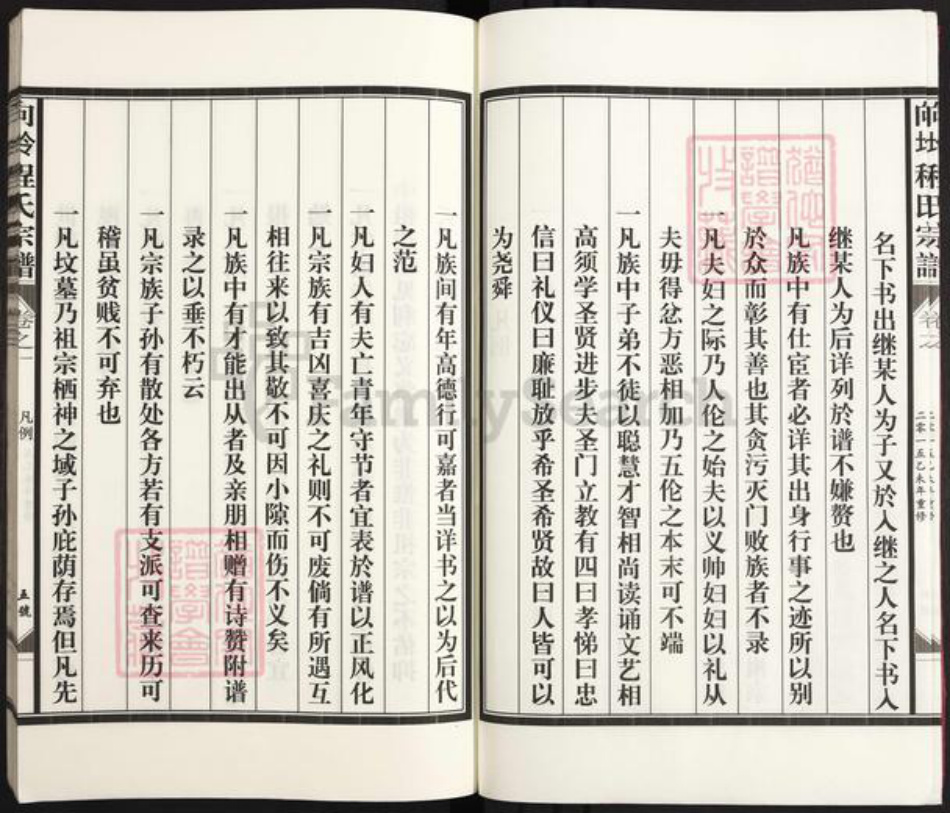 名下书出继某人为子又於入继之人名下书入
继某人为后详列於谱不嫌赘也
一凡族中有仕宦者必详其出身行事之迹所以别
於众而彰其善也其贪污灭门败族者不录
一凡夫妇之际乃人伦之始夫以义帅妇妇以礼从
夫毋得忿方恶相加乃五伦之本末可不端
一凡族中子弟不徒以聪慧才智相尚读诵文艺相
高须学圣贤进步夫圣门立教有四曰孝悌曰忠
信曰礼仪曰廉耻放乎希圣希贤故曰人皆可以
为尧舜
一凡族间有年高德行可嘉者当详书之以为后代
之范
一凡妇人有夫亡青年守节者宜表於谱以正风化
一凡宗族有吉凶喜庆之礼则不可废倘有所遇互
相往来以致其敬不可因小隙而伤不义矣
一凡族中有才能出从者及亲朋相赠有诗赞附谱
录之以垂不朽云
一凡宗族子孙有散处各方若有支派可查来历可
稽虽贫贱不可弃也
一凡坟墓乃祖宗栖神之域子孙庇荫存焉但凡先
程氏宗谱
卷之一
凡例
五號
二零一五乙未年重修
FamilySearch